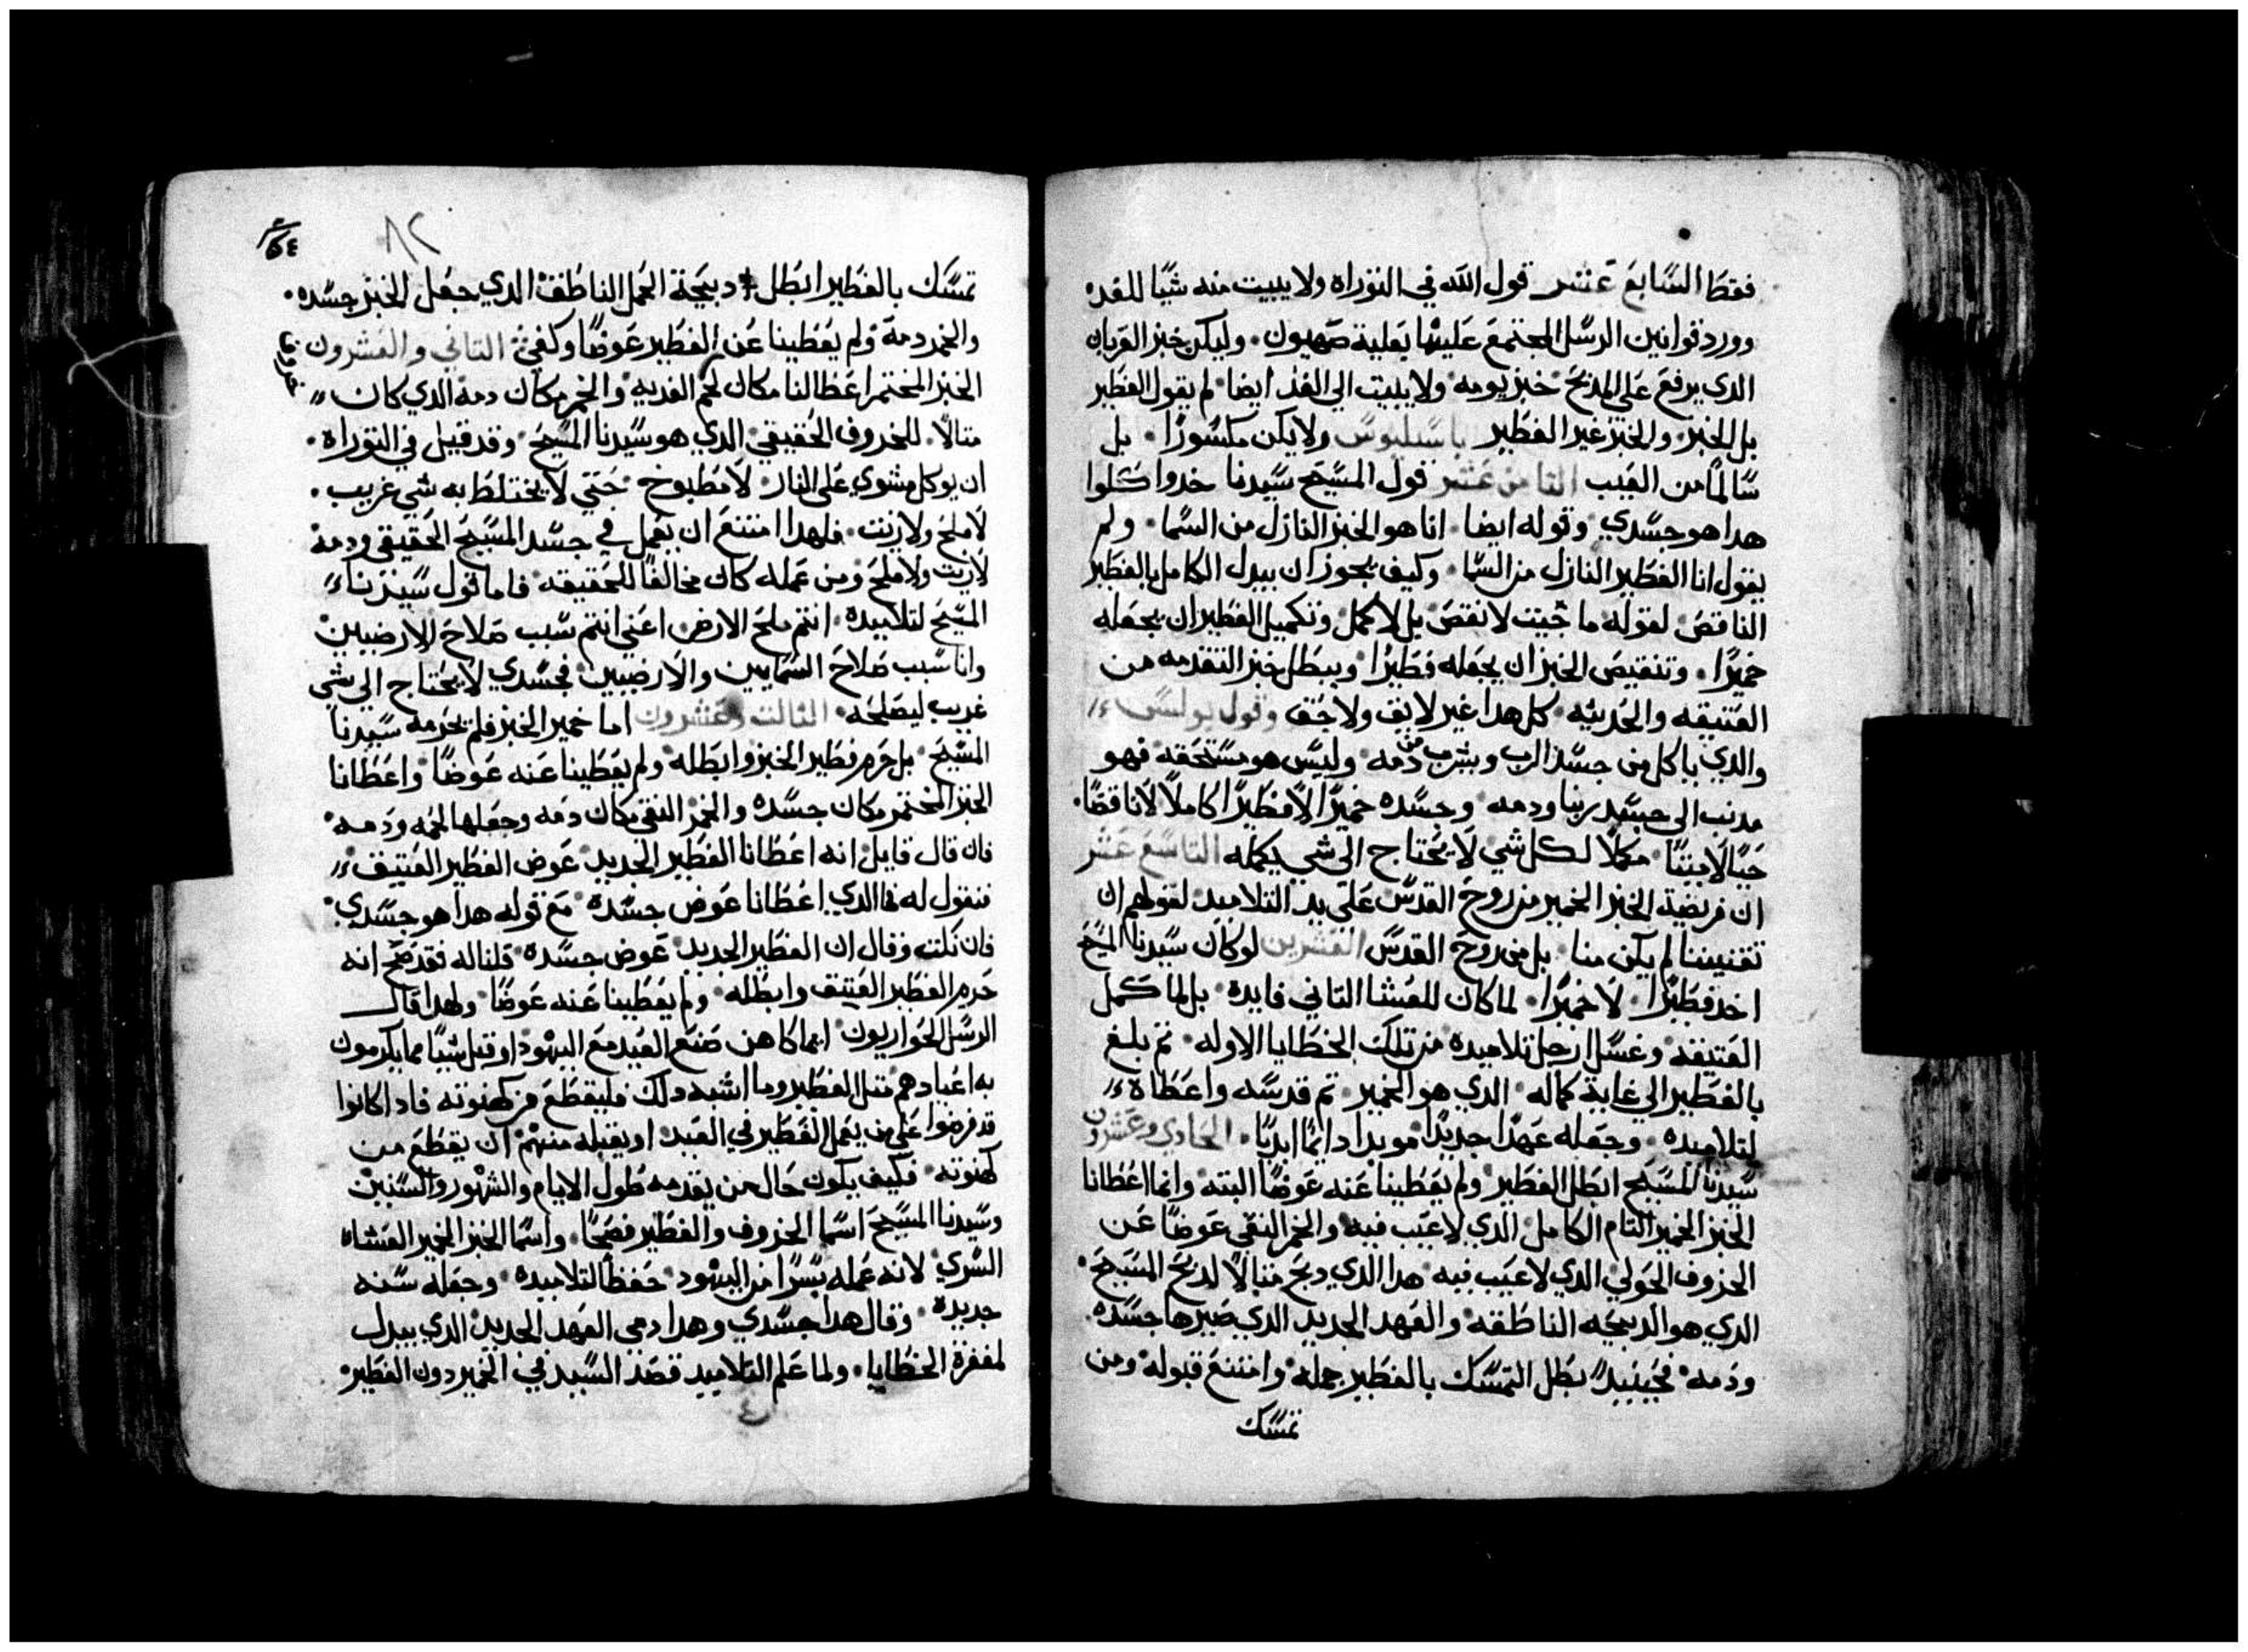 فقط السابع عشر قول الله في التوراه ولا يبيت منه شيا للغد
وورد قوانين الرسل المجتمع عليها بعلية صهيون وليكن خبز القربان
الدي يرفع على المدبح خبز يومه ولا يبيت الي الغد ايضا لم يقول الفطير
بل الخبز والخبز غير الفطير باسيليوس ولا يكن مكسورا بل
سالما من العيب التامن عشر قول المسيح سيدنا خدوا كلوا
هدا هو جسدي وقوله ايضا انا هو الخبز النازل من السما ولم
يقول انا الفطير النازل من السما وكيف يجوز ان يبدل الكامل بالفطير
الناقص لقوله ما جيت لانقص بل لاكمل وتكميل الفطير ان يجعله
خميرا وتنقيص الخبز ان يجعله فطيرا ويبطل خبز التقدمه من
العتيقه والحديثه كل هدا غير لايق ولا حق وقول بولس
والدي ياكل من جسد الرب ويشرب من دمه وليس هو مستحقه فهو
مدنب الى جسد ربنا ودمه وجسده خميرا لا فطيرا كاملا لا ناقصا
حيا لا ميتا مكملا لكل شي لا يحتاج الى شي يكمله التاسع عشر
ان فريضة الخبز الخمير من روح القدس على يد التلاميد لقولهم ان
تقنيننا لم يكن منا بل من روح القدس العشرين لو كان سيدنا المسيح
اخد فطيرا لا خميرا لما كان للعشا التاني فايدة بل لما كمل
العتيقه وغسل ارجل تلاميده من تلك الخطايا الاوله تم بلغ
بالفطير الي غاية كماله الدي هو الخمير تم قدسه واعطاه
لتلاميده وجعله عهدا جديدا موبدا دايما ابديا الحادي وعشرون
سيدنا المسيح ابطل الفطير ولم يعطينا عنه عوضا البته وانما اعطانا
الخبز الخمير التام الكامل الدي لا عيب فيه والخمر النقي عوضا عن
الخروف الحولي الدي لا عيب فيه هدا الدي دبح متالا لدبح المسيح
الدي هو الدبيحه الناطقه والعهد الجديد الدي صيرها جسده
ودمه فحينيد بطل التمسك بالفطير جمله وامتنع قبوله ومن
تمسك
٨٢
تمسك بالفطير ابطل دبيحة الحمل الناطقة الدي جعل الخبز جسده
والخمر دمه ولم يعطينا عن الفطير عوضا وكفي التاني والعشرون
الخبز المختمر اعطا لنا مكان لحم الفديه والخمر مكان دمه الدي كان
متالا للخروف الحقيقي الدي هو سيدنا المسيح وقد قيل في التوراه
ان يوكل مشوي على النار لا مطبوخ حتي لا يختلط به شي غريب
لا ملح ولا زيت فلهدا امتنع ان يعمل في جسد المسيح الحقيقي ودمه
لا زيت ولا ملح ومن عمله كان مخالفا للحقيقه فاما قول سيدنا
المسيح لتلاميده انتم ملح الارض اعني انتم سبب صلاح الارضيين
وانا سبب صلاح السمايين والارضيين فجسدي لا يحتاج الى شي
غريب ليصلحه التالت وعشرون اما خمير الخبز فلم يحرمه سيدنا
المسيح بل حرم فطير الخبز وابطله ولم يعطينا عنه عوضا واعطانا
الخبز المختمر مكان جسده والخمر النقي مكان دمه وجعلها لحمه ودمه
فان قال قايل انه اعطانا الفطير الجديد عوض الفطير العتيق
فنقول له فما الدي اعطانا عوض جسده مع قوله هدا هو جسدي
فان نكت وقال ان الفطير الجديد عوض جسده قلنا له فقد صح انه
حرم الفطير العتيق وابطله ولم يعطينا عنه عوضا ولهدا قال
الرسل الحواريون ايما كاهن صنع العيد مع اليهود او قبل شيا مما يكرمون
به اعيادهم متل الفطير وما اشبه دلك فليقطع من كهنوته فادا كانوا
قد فرضوا على من يعمل الفطير في العيد او يقبله منهم ان يقطع من
كهنوته فكيف يكون حال من يقدمه طول الايام والشهور والسنين
وسيدنا المسيح اسما الخروف والفطير فصحا واسما الخبز الخمير العشاء
السري لانه عمله سرا من اليهود حفظا لتلاميده وجعله سنه
جديده وقال هدا جسدي وهدا دمي العهد الجديد الدي يبدل
لمغفرة الخطايا ولما علم التلاميد قصد السيد في الخمير دون الفطير